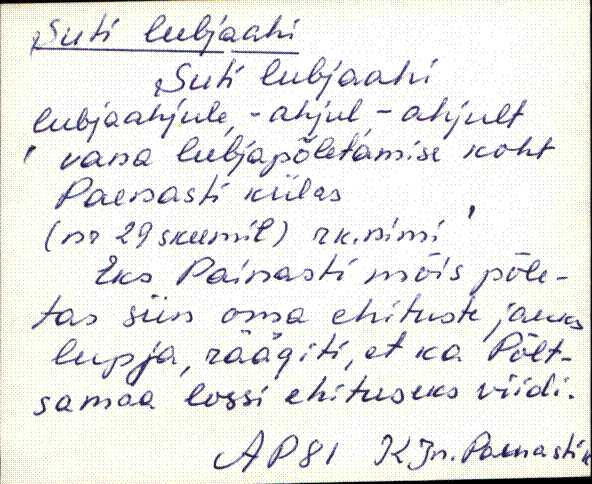 Suti lubjaahi
Suti lubjaahi
lubjaahjule, -ahjul - ahjult
' vana lubjapõletamise koht
Paenasti külas
(nr 29 skeemil) rk. nimi '
Eks Painasti mõis põle-
tas siin oma ehituste jaoks
lupja, räägiti, et ka Põlt-
samaa lossi ehituseks viidi.
AP81 KJn. Paenasti k